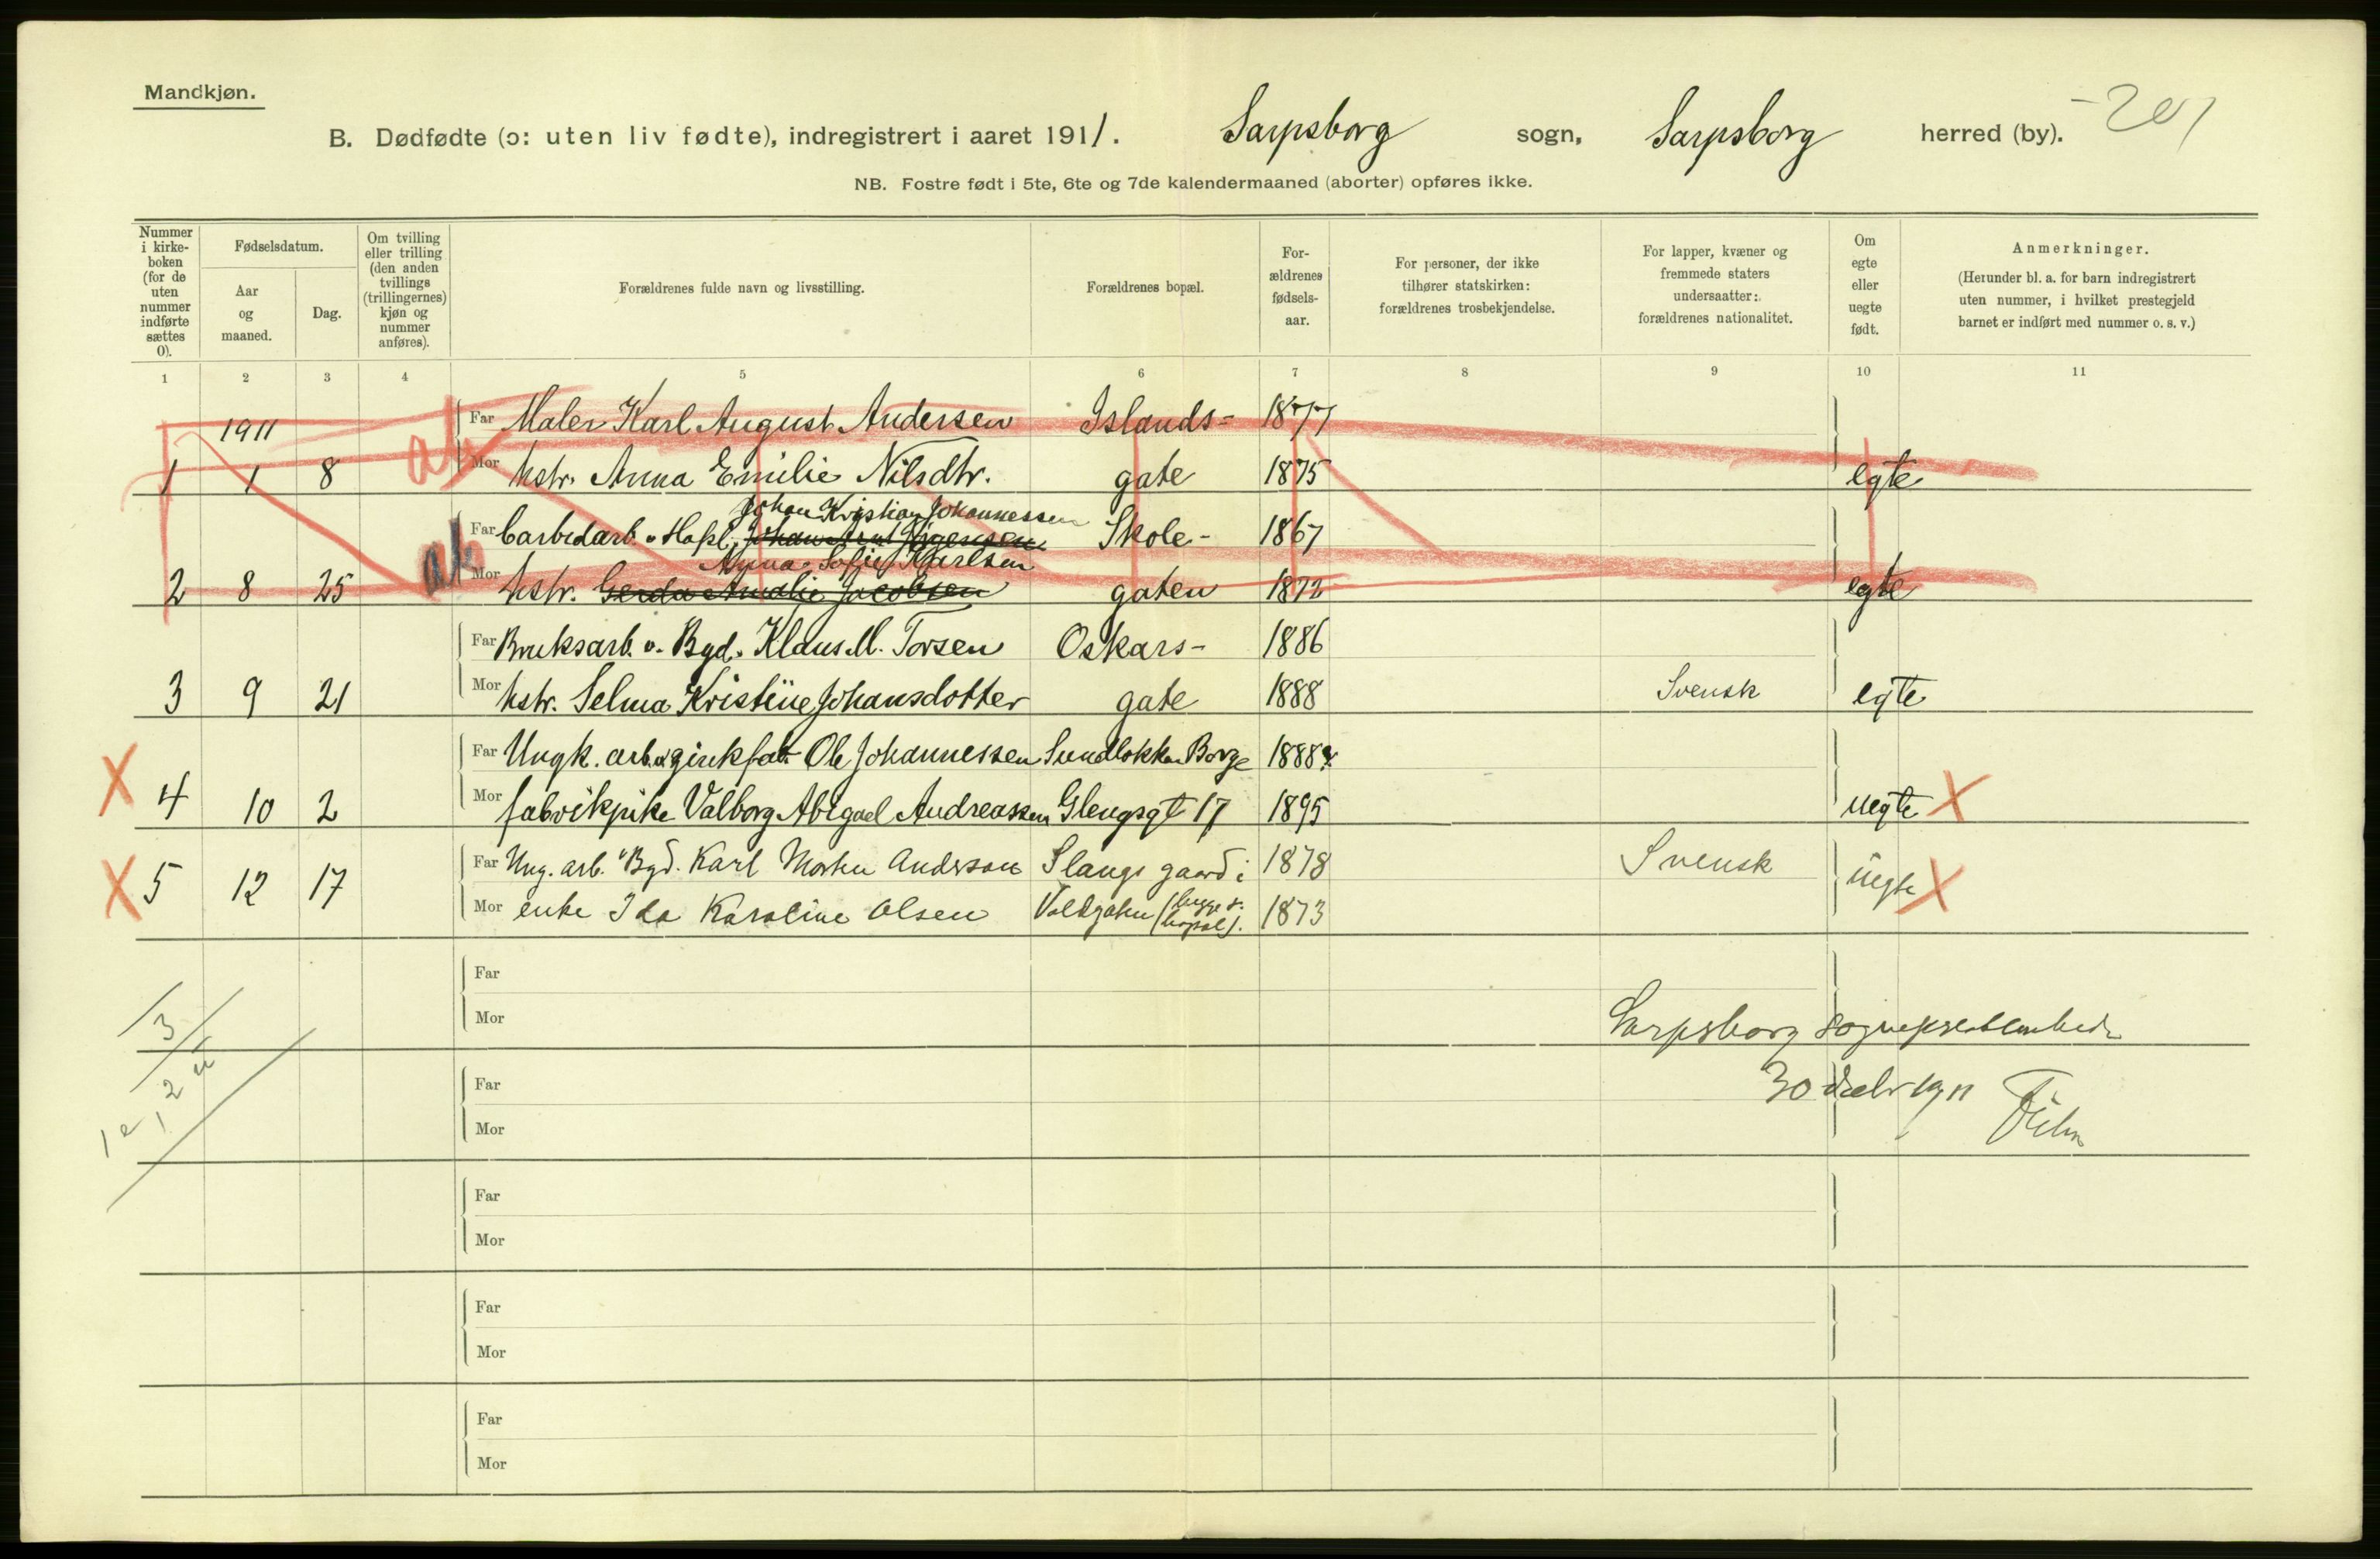 Mandkjøn.
B. Dødfødte (ɔ: uten liv fødte), indregistrert i aaret 1911. Sarpsborg sogn, Sarpsborg herred (by). 201
NB. Fostre født i 5te, 6te og 7de kalendermaaned (aborter) opføres ikke.
Nummer i kirke- boken (for de uten nummer indførte sættes 0).
Fødselsdatum.
Aar og maaned.
Dag.
Om tvilling eller trilling (den anden tvillings (trillingernes) kjøn og nummer anføres).
Forældrenes fulde navn og livsstilling.
Forældrenes bopæl.
For- ældrenes fødsels- aar.
For personer, der ikke tilhører statskirken: forældrenes trosbekjendelse.
For lapper, kvæner og fremmede staters undersaatter: forældrenes nationalitet.
Om egte eller uegte født.
Anmerkninger.
(Herunder bl. a. for barn indregistrert uten nummer, i hvilket prestegjeld barnet er indført med nummer o. s. v.)
1 2 3 4 5 6 7 8 9 10 11
1911 Far Maler Karl August Andersen Islands- 1877
1 1 8 ab Mor hstr. Anna Emilie Nilsdtr. gate 1875 egte
Johan Kristian Johannessen
Far Carbidarb. v. Hafsl. Skole- 1867
Anna Sofie Karlsen
2 8 25 ab Mor hstr. Gerda Amalie Jacobsen gaten 1872 egte
Far Bruksarb. v. Bgd. Klaus M. Torsen Oskars- 1886
3 9 21 Mor hstr. Selma Kristine Johansdotter gate 1888 Svensk egte
Far Ungk. arb. v. zinkfab. Ole Johannessen Sundløkka Borge 1888
X 4 10 2 Mor fabrikpike Valborg Abigael Andreassen Glengsgt 17 1895 uegte X
Far Ung. arb. v. Bgd. Karl Morten Anderson Slangs gaard i 1878 Svensk
X 5 12 17 Mor enke Ida Karoline Olsen Voldgaten (begge s. bopæl). 1873 uegte X
Far
Mor
Sarpsborg sogneprestembede
3
Far
30 decbr 1911
2 u
1 e 1
Mor
Far
Mor
Far
Mor
Far
Mor